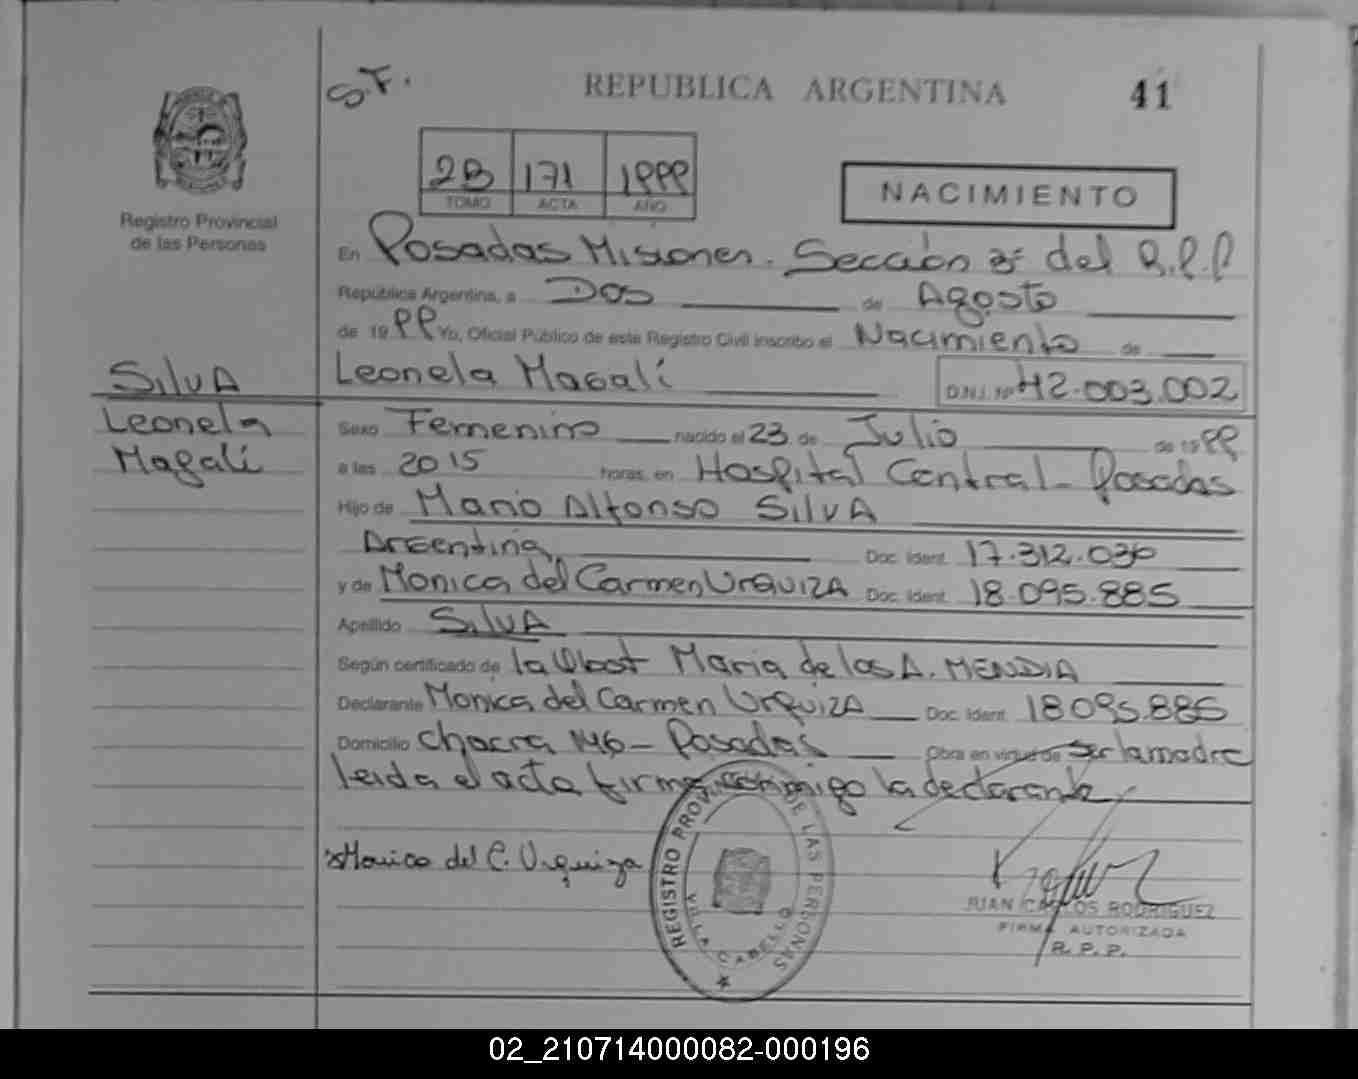 S.F.
REPUBLICA ARGENTINA
41
2B 171 1999
TOMO ACTA AÑO
NACIMIENTO
Registro Provincial
de las Personas
En Posadas Misiones. Sección 3ª del R.P.P
República Argentina, a Dos de Agosto
de 1999 Yo, Oficial Público de este Registro Civil inscribo el Nacimiento de
Leonela Magalí D.N.I. Nº 42.003.002
SILVA
Leonela
Magalí
Sexo Femenino nacido el 23 de Julio de 1999
a las 2015 horas, en Hospital Central - Posadas
Hijo de Mario Alfonso SILVA
Argentina Doc. Ident. 17.312.030
y de Monica del Carmen URQUIZA Doc. Ident. 18.095.885
Apellido SILVA
Según certificado de la Obst Maria de los A. MENDIA
Declarante Monica del Carmen URQUIZA Doc. Ident. 18095.885
Domicilio Chacra 146 - Posadas Obra en virtud de ser la madre
leida el acta firma conmigo la declarante
Monica del C. Urquiza
REGISTRO PROV. DE LAS PERSONAS
VILLA CABELLO
JUAN CARLOS RODRIGUEZ
FIRMA AUTORIZADA
R.P.P.
02_210714000082-000196